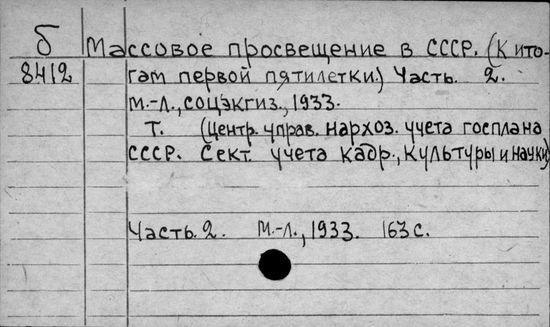 б Массовое просвещение в СССР. (К ито-
8412 гам первой пятилетки.) Часть. 2.
М.-Л., соцэкгиз., 1933.
Т. (Центр. управ. нархоз. учета госплана
СССР. Сект. учета кадр., культуры и науки)
Часть. 2. М.-Л., 1933. 163 с.